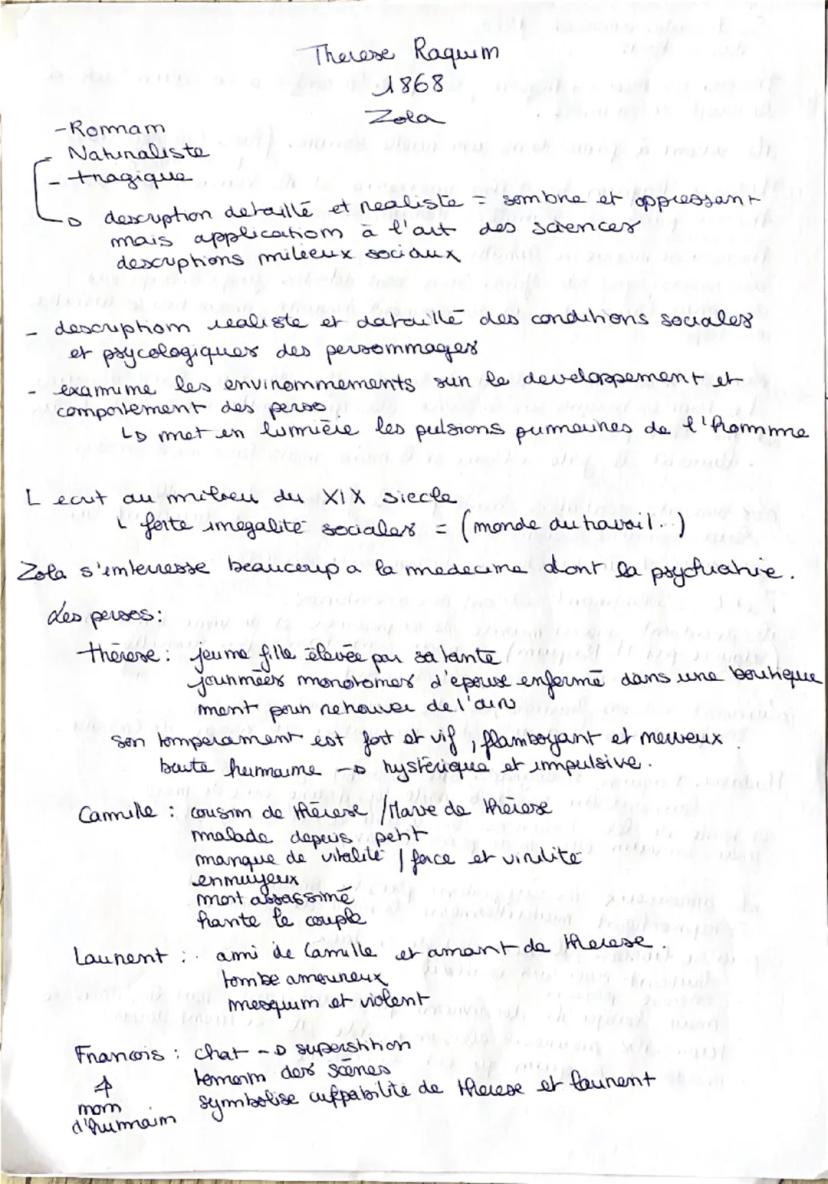 Therese Raquin
1868
Zola
- Roman
- Naturaliste
- tragique
↳ description detaillé et realiste = sombre et oppressant
mais application à l'art des sciences
descriptions milieux sociaux
- description realiste et datouillé des conditions sociales
et psycologiques des personnages
- examine les environnements sur le developpement et
comportement des perso
↳ met en lumière les pulsions pumaines de l'Homme
L ecrit au milieu du XIX siecle
↳ forte inegalité sociales = (monde du travail...)
Zola s'interesse beaucoup a la medecine dont la psychiatrie.
Les persos:
thérese : jeune fille élevée par sa tante
journées monotones d'épouse enfermé dans une boutique
ment pour retrouver de l'air
son temperament est fort et vif, flamboyant et nerveux.
brute humaine → hystérique et impulsive.
Camille : cousin de thérese / Mari de thérese
malade depuis petit
manque de vitalité / force et virilité
ennuyeux
mort assassiné
hante le couple
Laurent : ami de Camille et amant de therese.
tombe amoureux
mesquin et violent
Francois : chat → superstition
↑ temoin des scènes
nom
d'humain
symbolise culpabilité de therese et laurent